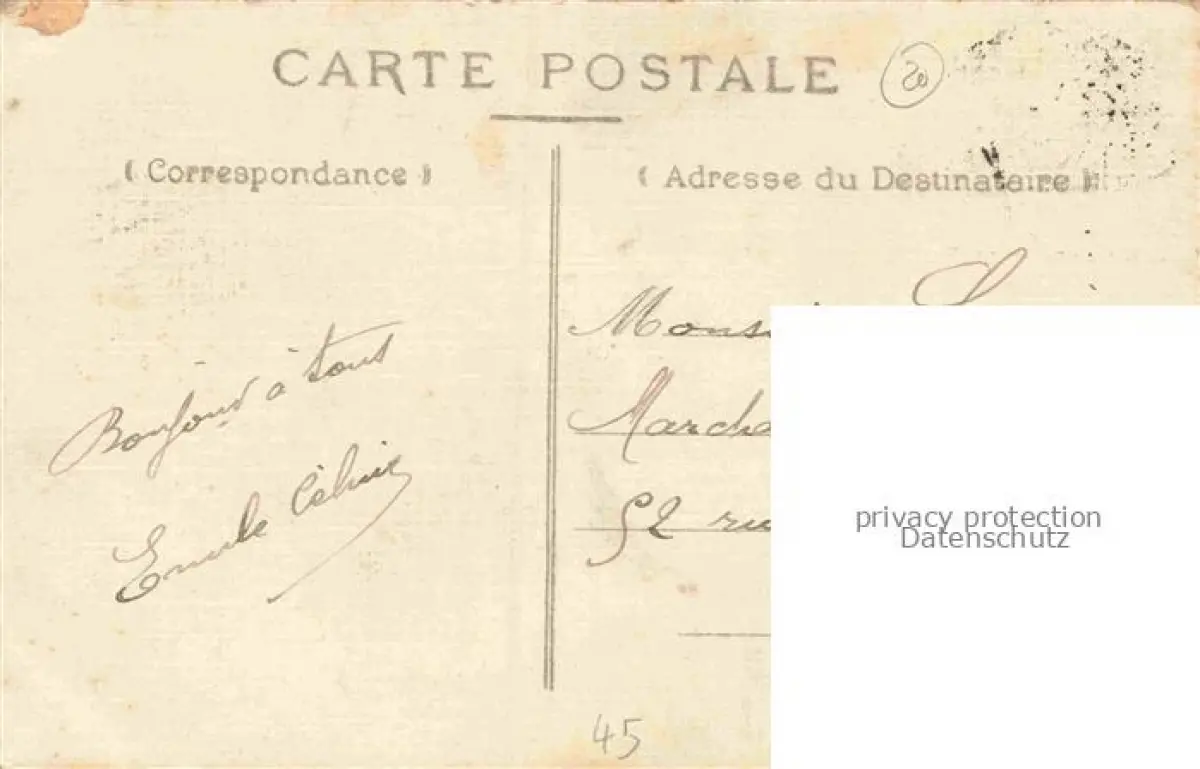 CARTE POSTALE
20
( Correspondance )
( Adresse du Destinataire )
Bonjour à tous
Emile
Marcha
52 ru
privacy protection
Datenschutz
45